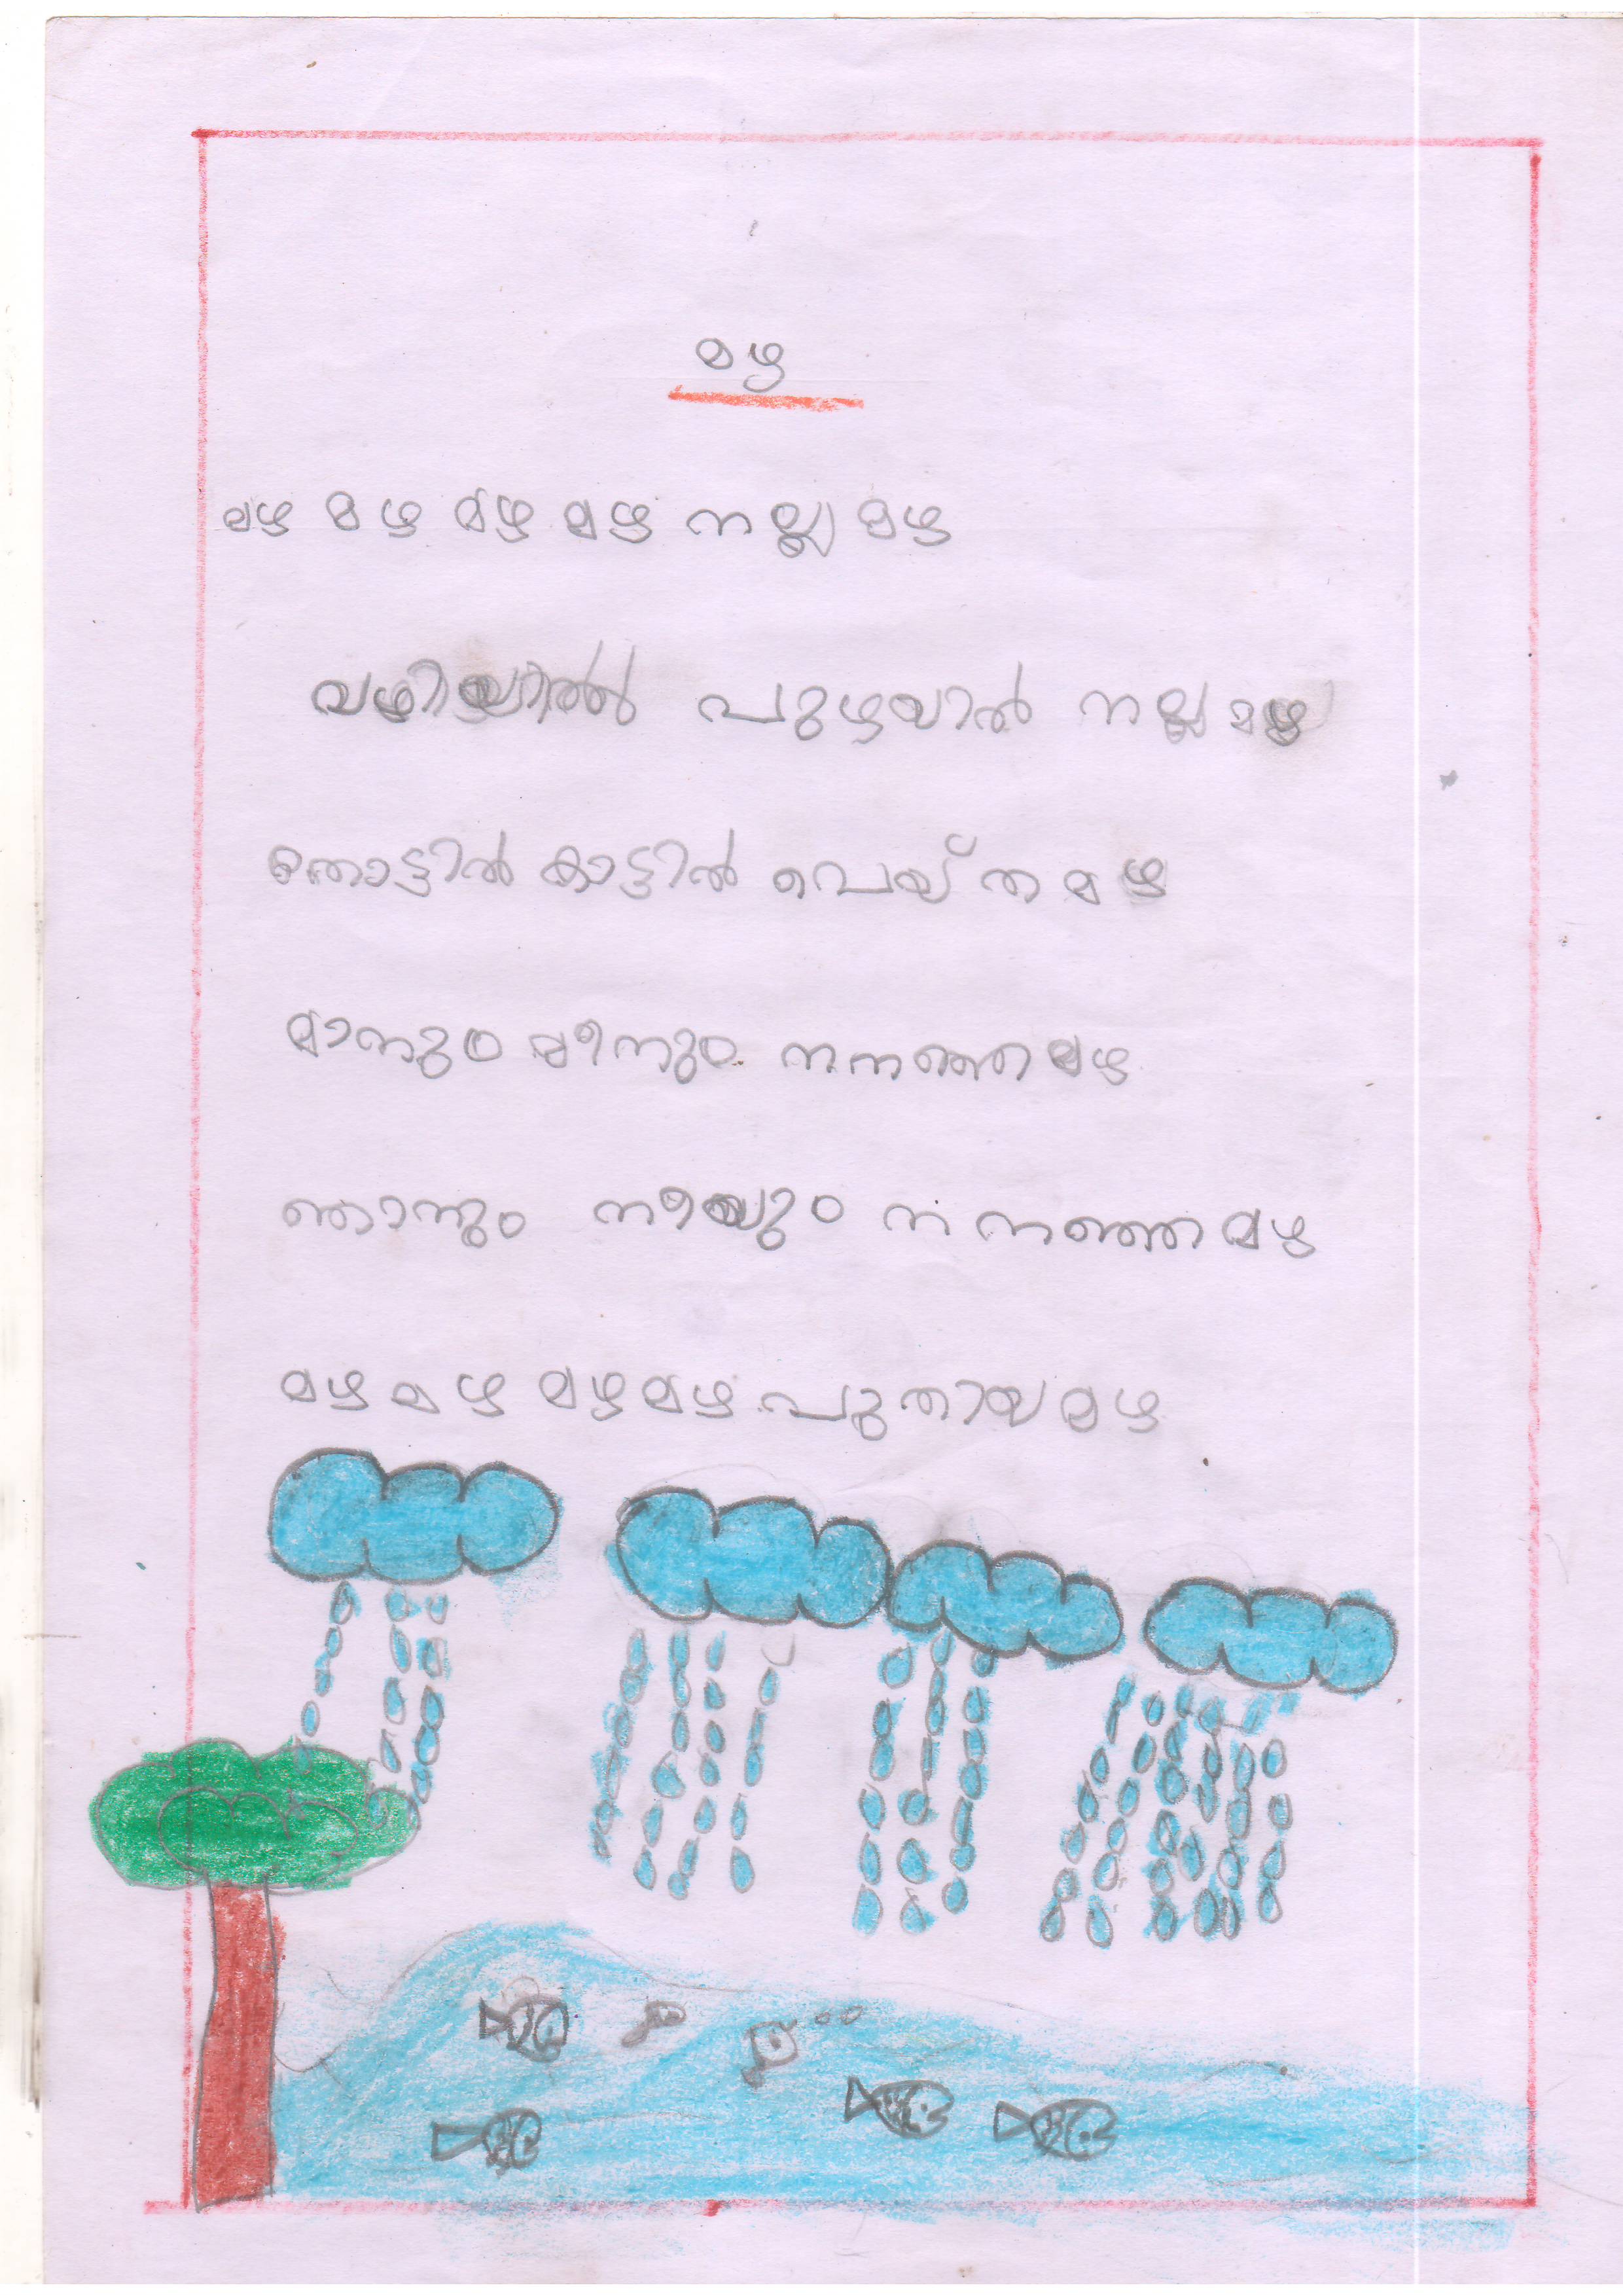 മഴ
മഴ മഴ മഴ മഴ നല്ല മഴ
വഴിയിൽ പുഴയിൽ നല്ല മഴ
തോട്ടിൽ കാട്ടിൽ പെയ്ത മഴ
മാനും മീനും നനഞ്ഞ മഴ
ഞാനും നീയും നനഞ്ഞ മഴ
മഴ മഴ മഴ മഴ പുതിയ മഴ